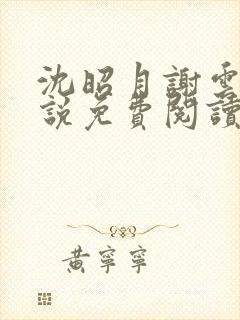 沈昭月謝雲
說免費閱讀
黃寧寧